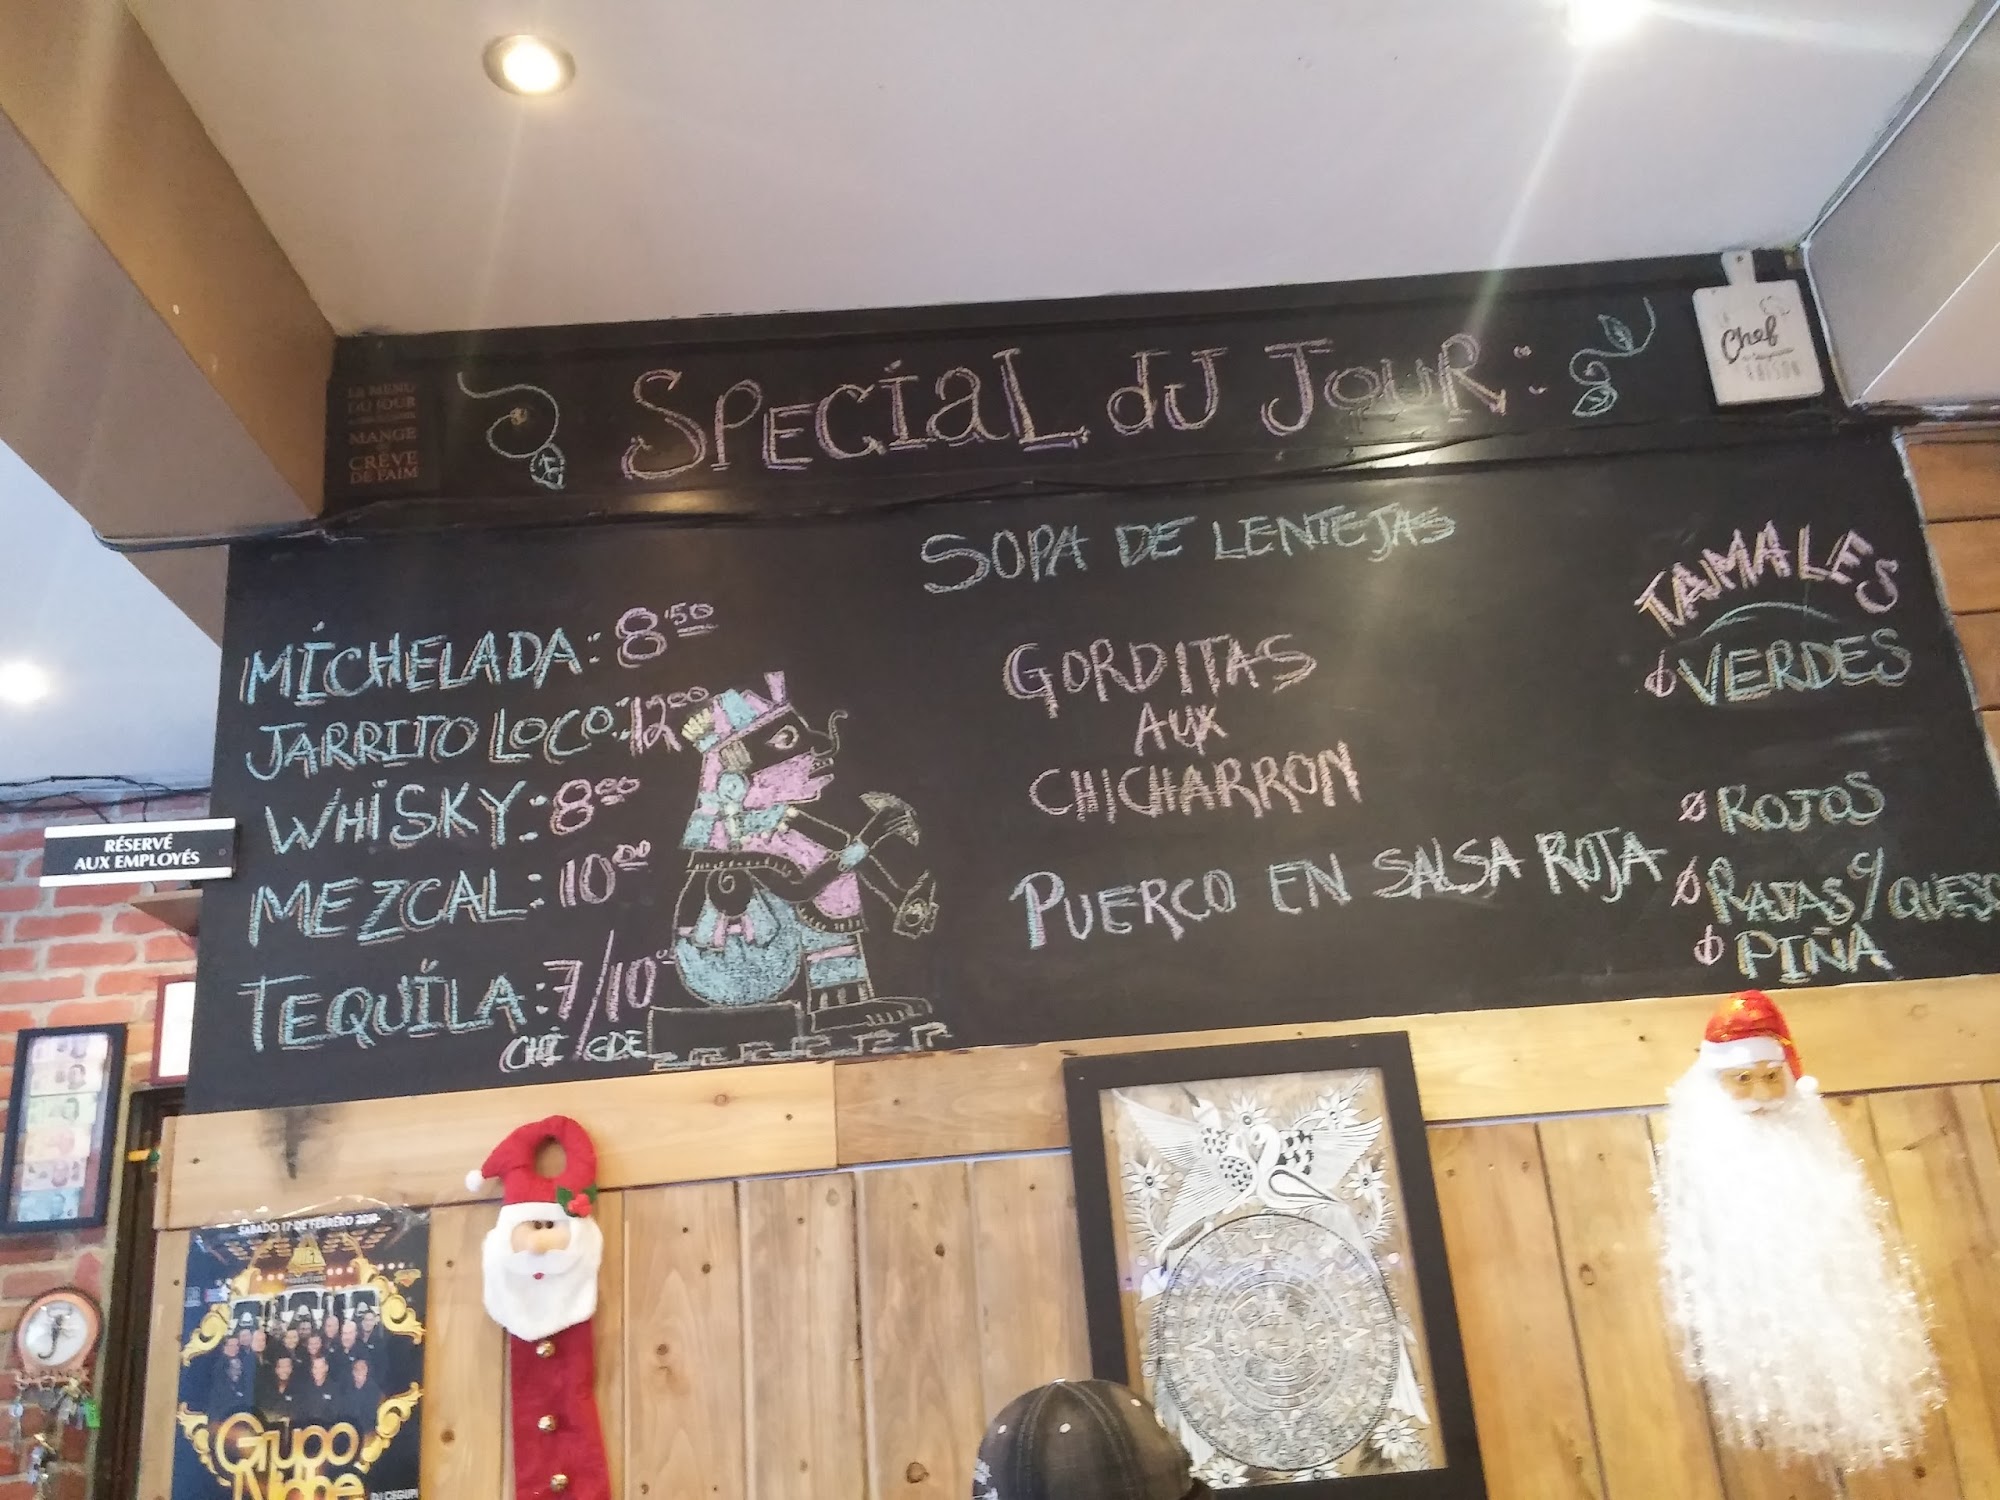 LE MENU
DU JOUR
MANGE
CRÈVE
DE FAIM
SPECIAL dU JOUR :
Chef
RAISON
SOPA DE LENTEJAS
MICHELADA: 8.50
JARRITO LOCO: 12.00
WHISKY: 8.00
MEZCAL: 10.00
TEQUILA: 7/10
CHI GDE
GORDITAS
AUX
CHICHARRON
PUERCO EN SALSA ROJA
TAMALES
VERDES
ROJOS
RAJAS c/ QUESO
PIÑA
RÉSERVÉ
AUX EMPLOYÉS
SABADO 17 DE FEBRERO 2018
Grupo
Niche